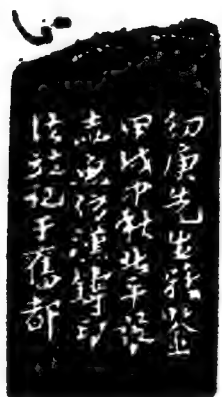 幼庚先生雅鉴
甲戌中秋北平
仿漢鑄印
法並記于舊都